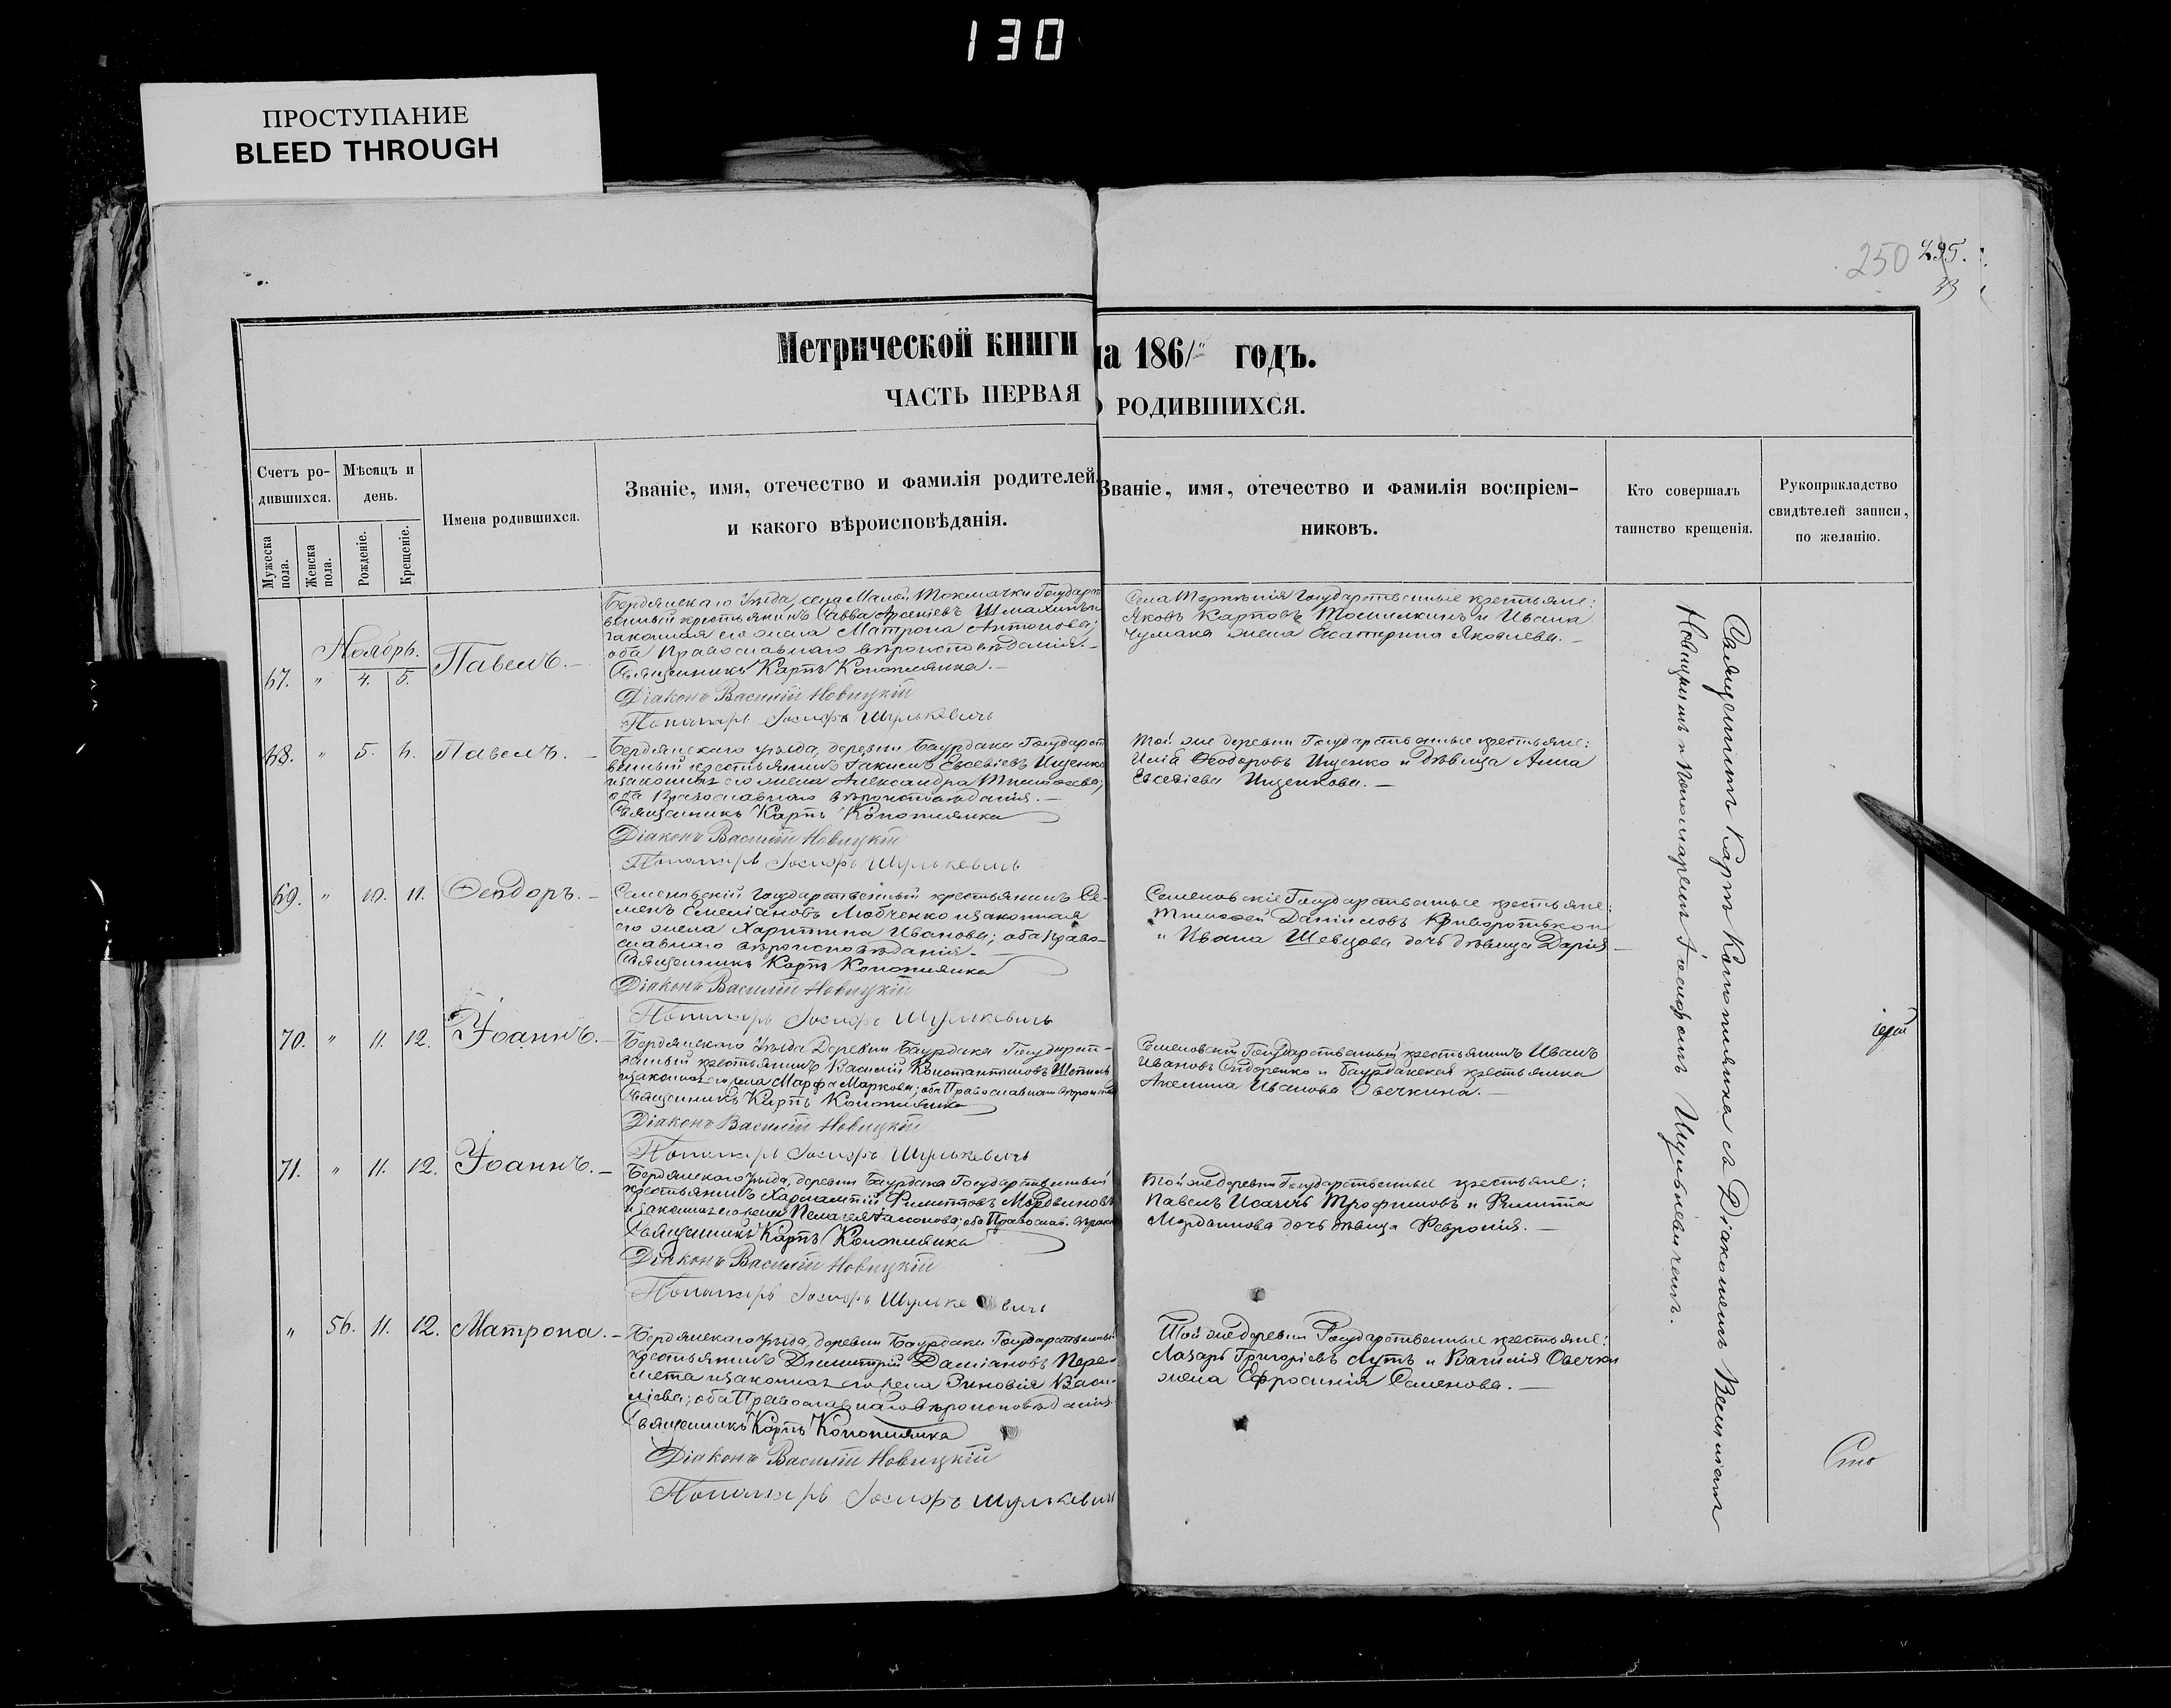 130
ПРОСТУПАНИЕ
BLEED THROUGH
250 295.
Метрической книги на 1861 годъ.
ЧАСТЬ ПЕРВАЯ О РОДИВШИХСЯ.
Счетъ ро-
дившихся.
Мѣсяцъ и
день.
Мужеска
пола.
Женска
пола.
Рожденіе.
Крещеніе.
Имена родившихся.
Званіе, имя, отечество и фамилія родителей,
и какого вѣроисповѣданія.
Званіе, имя, отечество и фамилія воспріем-
никовъ.
Кто совершалъ
таинство крещенія.
Рукоприкладство
свидѣтелей записи,
по желанію.
Ноябрь.
67. " 4. 5. Павелъ.
Бердянскаго Уѣзда, села Малой Токмачки Государст
венный крестьянинъ Савва Арсеніевъ
законная его жена Матрона Антонова;
оба Православнаго вѣроисповѣданія.
Священникъ Карпъ Коноплянка.
Діаконъ Василій Новицкій
Пономарь Іосифъ Шулькевичъ
Села Терпѣнія Государственные крестьяне:
Яковъ Карповъ и Ивана
Чумака жена Екатерина Яковлева.
68. " 5. 6. Павелъ.
Бердянскаго уѣзда, деревни Баурдака Государст
венный крестьянинъ Евсевіевъ Ищенко
и законная его жена Александра Тимофеева;
оба Православнаго вѣроисповѣданія.
Священникъ Карпъ Коноплянка
Діаконъ Василій Новицкій
Пономарь Іосифъ Шулькевичъ
Той же деревни Государственные крестьяне:
Илія Ѳеодоровъ Ищенко и Дѣвица Анна
Евсевіева Ищенкова.
69. " 10. 11. Ѳеодоръ.
Семеновскій Государственный крестьянинъ Се-
менъ Емеліановъ Любченко и законная
его жена Харитина Иванова; оба Право-
славнаго вѣроисповѣданія.
Священникъ Карпъ Коноплянка
Діаконъ Василій Новицкій
Пономарь Іосифъ Шулькевичъ
Семеновскіе Государственные крестьяне:
Тимофей Даніиловъ
и Ивана Шевцова дочь дѣвица Дарія
70. " 11. 12. Іоаннъ.
Бердянскаго Уѣзда Деревни Баурдака Государст-
венный крестьянинъ Василій Константиновъ
и законная его жена Марфа Маркова; оба Православнаго
Священникъ Карпъ Коноплянка
Діаконъ Василій Новицкій
Пономарь Іосифъ Шулькевичъ
Семеновскій Государственный крестьянинъ Иванъ
Ивановъ Сидоренко и Баурдакская крестьянка
Акелина Иванова Овечкина.
71. " 11. 12. Іоаннъ.
Бердянскаго Уѣзда, деревни Баурдака Государственный
крестьянинъ Харлампій Филипповъ Мордвиновъ
и законная его жена Пелагея; оба Православ.
Священникъ Карпъ Коноплянка
Діаконъ Василій Новицкій
Пономарь Іосифъ Шулькевичъ
Той же деревни Государственные крестьяне:
Павелъ Исаичъ Трофимовъ и Филиппа
дочь дѣвица Февронія.
" 56. 11. 12. Матрона.
Бердянскаго Уѣзда, деревни Баурдака Государственный
крестьянинъ Димитрій Даміановъ Пере-
мета и законная его жена Зиновія Васи-
ліева; оба Православнаго вѣроисповѣданія.
Священникъ Карпъ Коноплянка
Діаконъ Василій Новицкій
Пономарь Іосифъ Шулькевичъ
Той же деревни Государственные крестьяне:
Лазарь Григоріевъ Лутъ и Василія Овечки
жена Ефросинія Семенова.
Священникъ Карпъ Коноплянка съ Діакономъ Василіемъ
Новицкимъ и Пономаремъ Іосифомъ Шулькевичемъ.